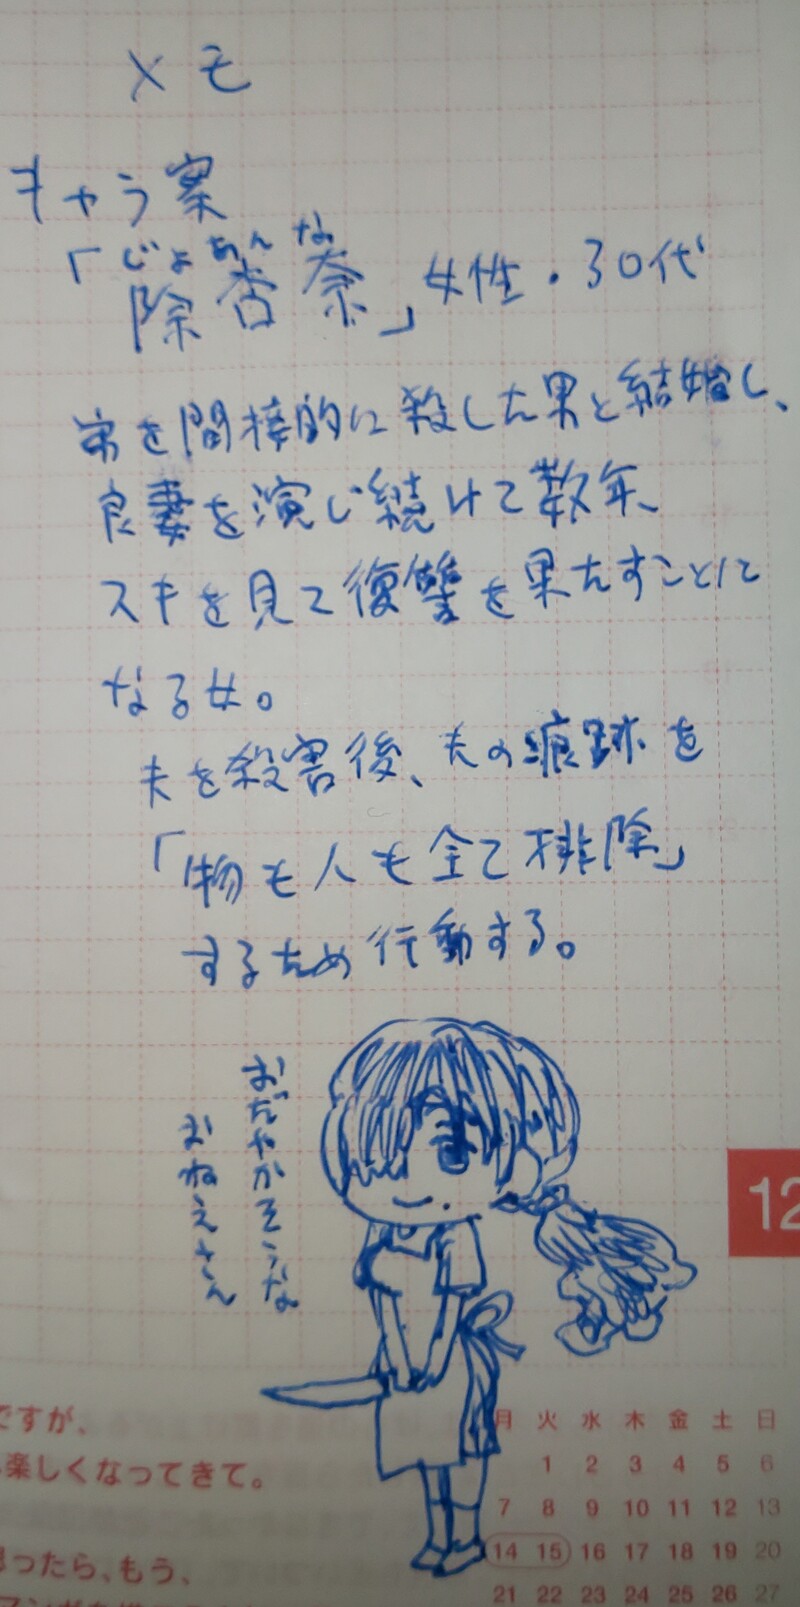 メモ
キャラ案
じょ あん な
「除杏奈」女性・30代
弟を間接的に殺した男と結婚し、
良妻を演じ続けて数年、
スキを見て復讐を果たすことに
なる女。
夫を殺害後、夫の痕跡を
「物も人も全て排除」
するため行動する。
おだやかそうな
おねえさん
12
ですが、
楽しくなってきて。
ったら、もう、
月 火 水 木 金 土 日
1 2 3 4 5 6
7 8 9 10 11 12 13
14 15 16 17 18 19 20
21 22 23 24 25 26 27